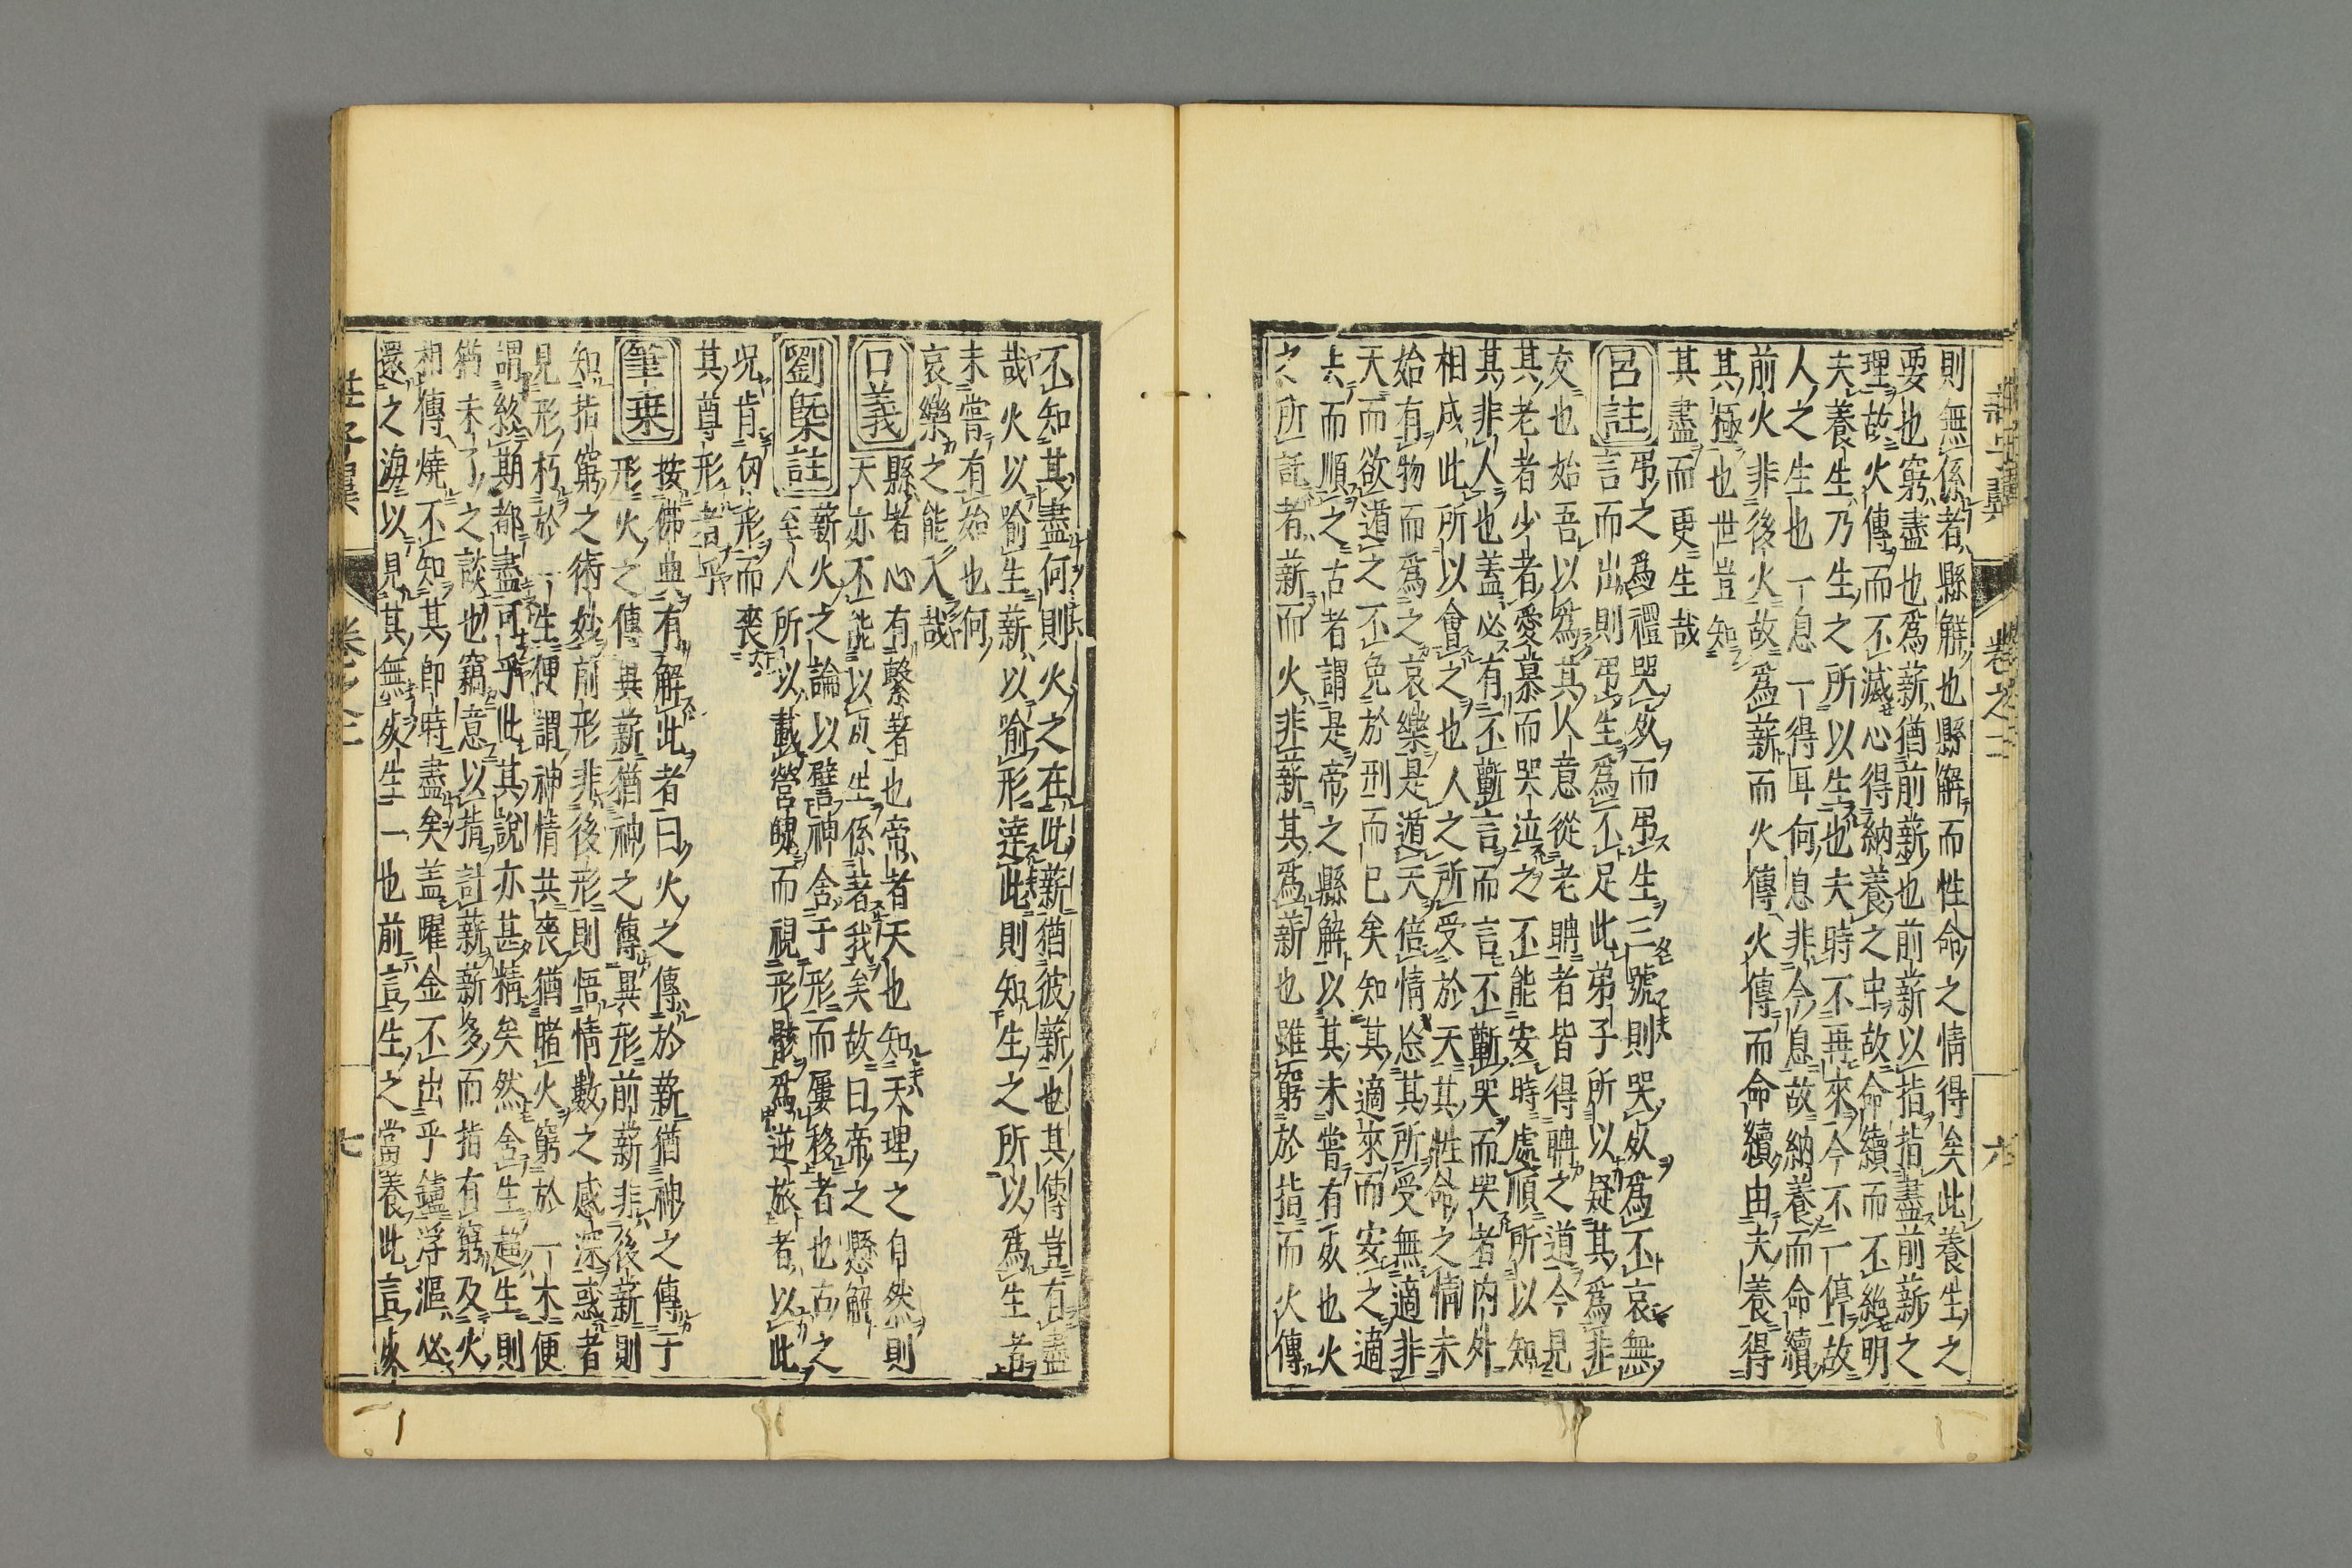 則無係者縣解也縣解而性命之情得矣此養生之
要也窮盡也爲薪猶前薪也前薪以指指盡前薪之
理故火傳而不滅心得納養之中故命續而不絶明
夫養生乃生之所以生也夫時不再來今不一停故
人之生也一息一得耳向息非今息故納養而命續
前火非後火故爲薪而火傳火傳而命續由夫養得
其極也世豈知
其盡而更生哉
呂註
弔之爲禮哭死而弔生三號則哭死爲不哀無
言而出則弔生爲不足此弟子所以疑其爲非
友也始吾以爲其人意從老聃者皆得聃之道今見
其老者少者愛慕而哭泣之不能安時處順所以知
其非人也蓋必有不蘄言而言不蘄哭而哭者內外
相成此所以會之也人之所受於天其性命之情未
始有物而爲之哀樂是遁天倍情忘其所受無適非
天而欲遁之不免於刑而已矣知其適來而安之適
去而順之古者謂是帝之縣解以其未嘗有死也火
之所託者薪而火非薪其爲薪也雖窮於指而火傳
不知其盡何則火之在此薪猶彼薪也其傳豈有盡
哉火以喻生薪以喻形達此則知生之所以爲生者
未嘗有始也何
哀樂之能入哉
口義
縣者心有繫著也帝者天也知天理之自然則
天亦不能以死生係著我矣故曰帝之懸解
劉槩註
薪火之論以譬神舍于形而屢移者也古之
至人所以載營魄而視形骸爲逆旅者以此
况肯徇形而喪
其尊形者乎
筆乗
按佛典有解此者曰火之傳於薪猶神之傳于
形火之傳異薪猶神之傳異形前薪非後薪則
知指窮之術妙前形非後形則悟情數之感深惑者
見形朽於一生便謂神情共喪猶睹火窮於一木便
謂終期都盡可乎此其說亦甚精矣然舍生趨生則
猶未了之談也竊意以指計薪薪多而指有窮及火
相傳燒不知其卽時盡矣蓋曜金不出乎鑪浮漚必
還之海以見其無死生一也前言生之當養此言死
莊子翼 卷之二 六
莊子翼 卷之二 七